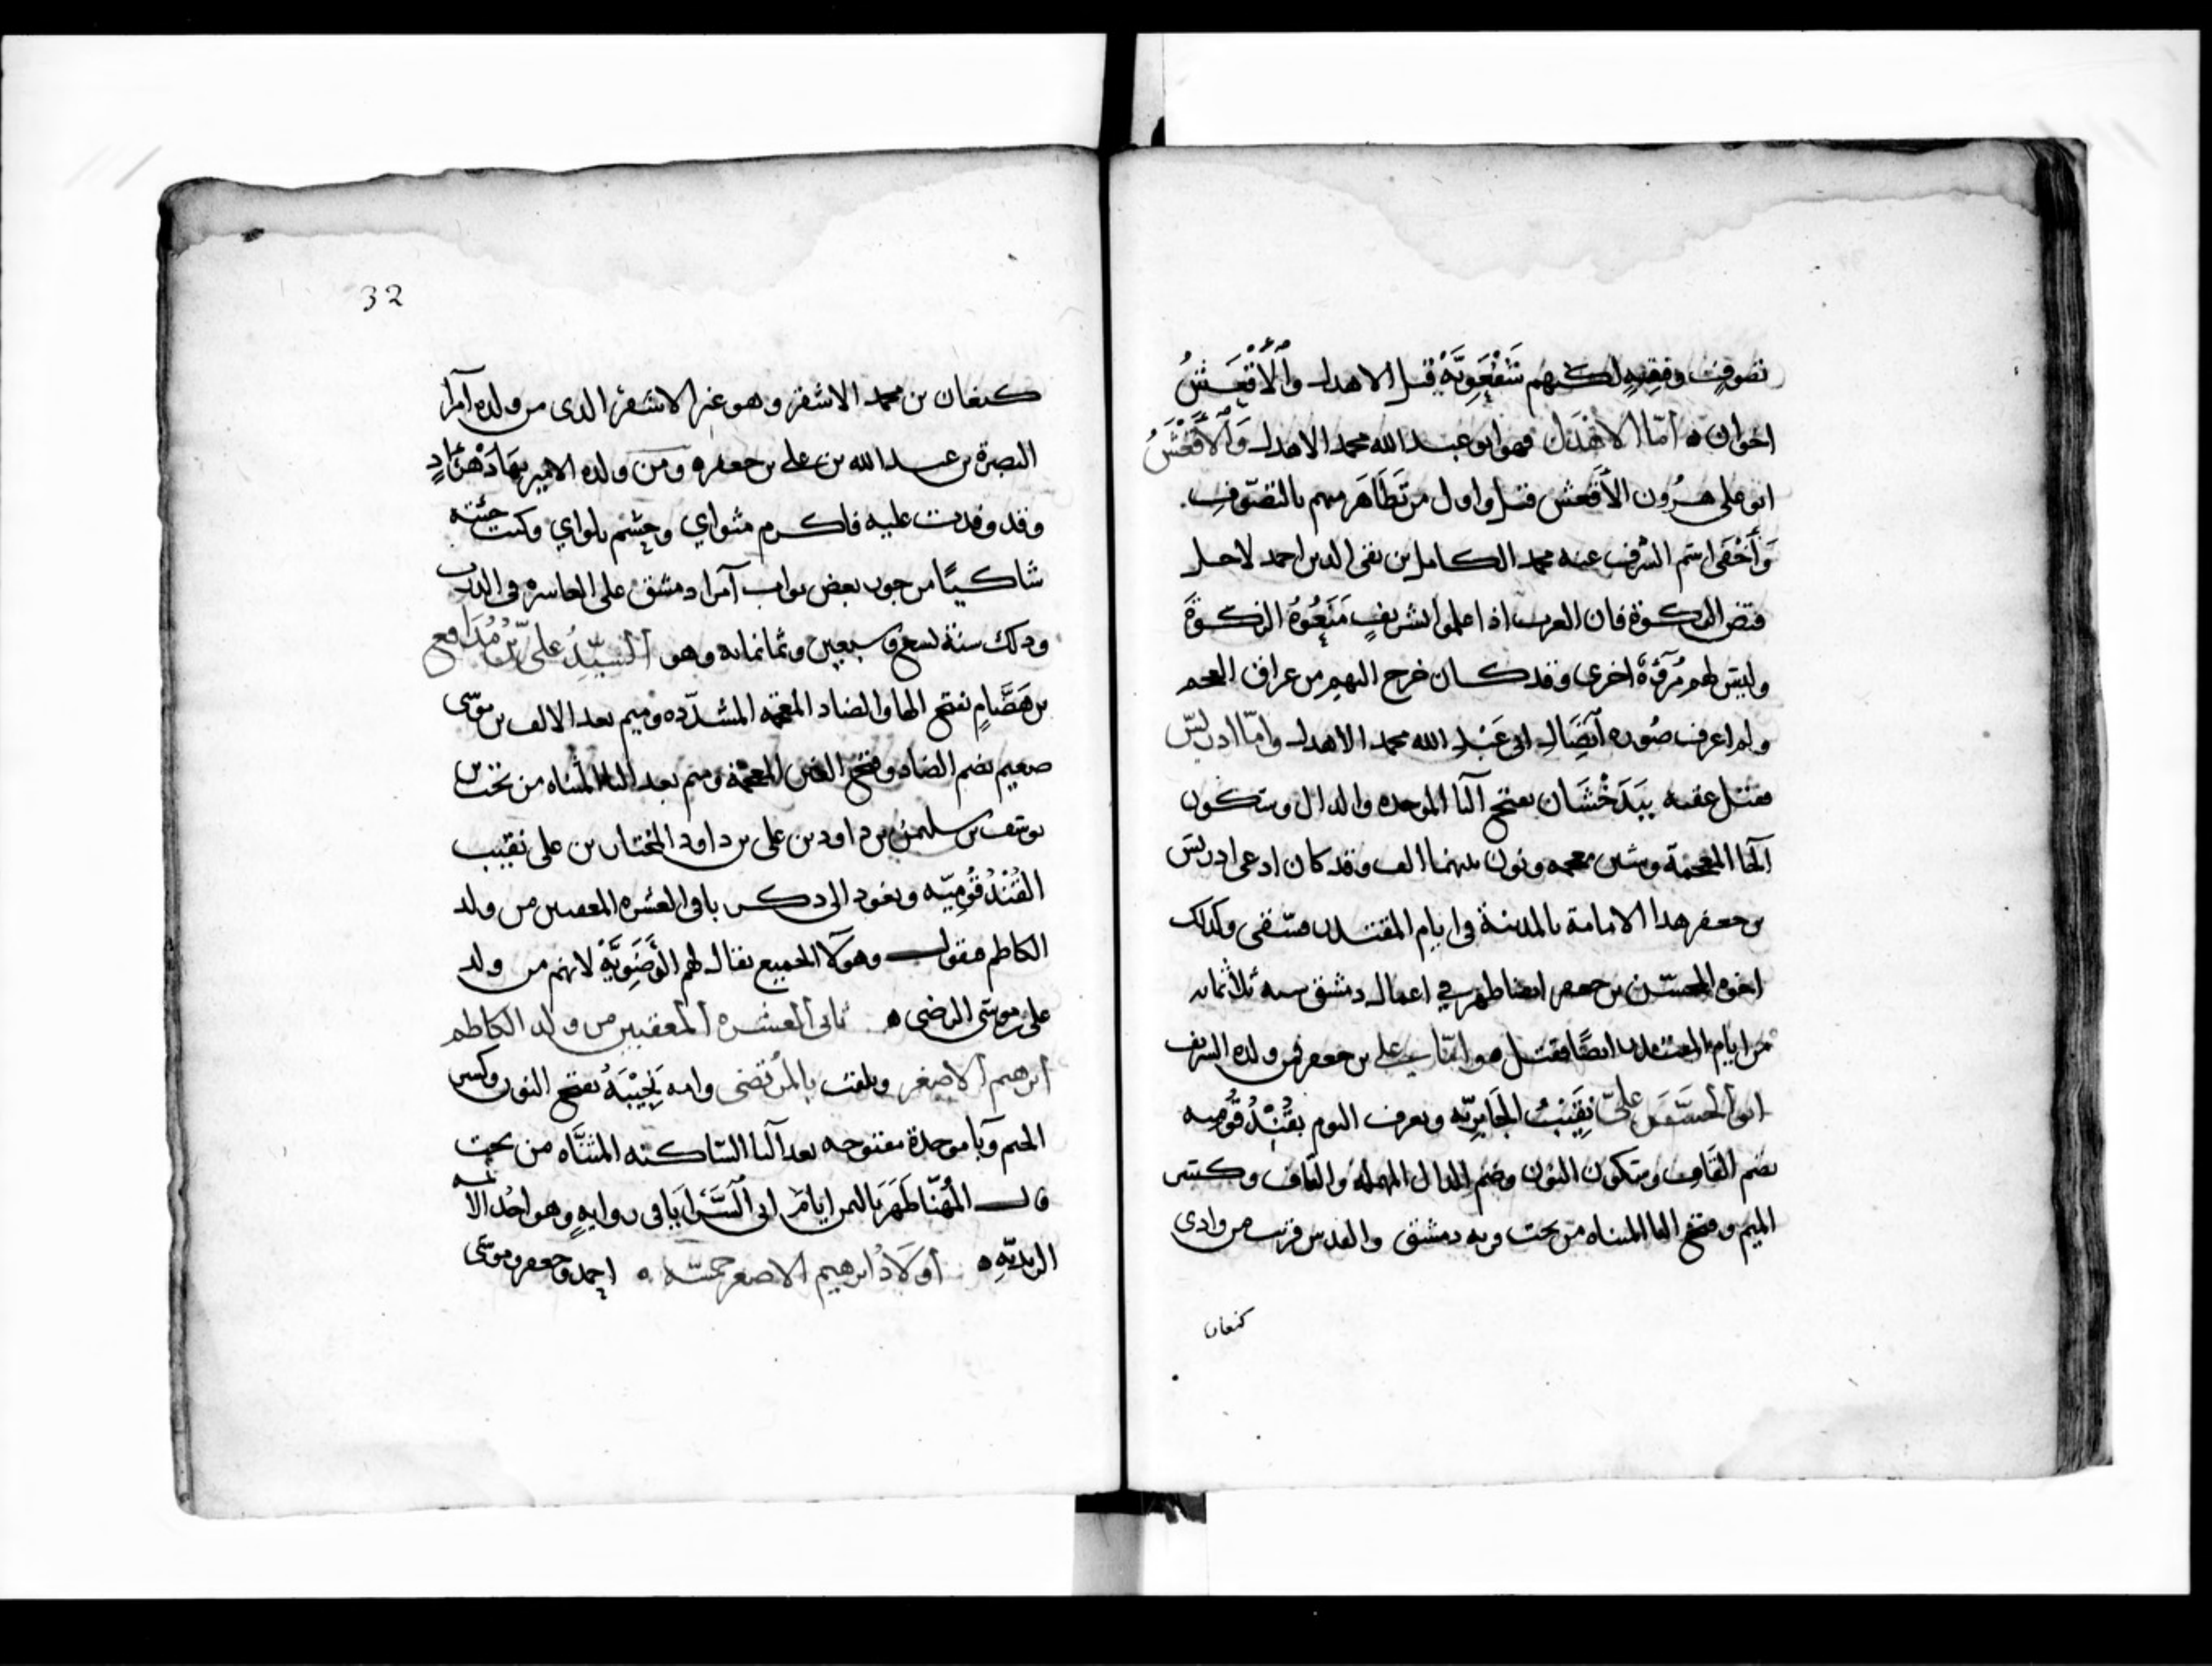 تصوف وفقيه لكنهم شَفْعَوِيَّة قيل الاهدل والأَقْعَشُ
اخوان ه أمّا الاهْدَل فهو ابو عبد الله محمد الاهدل وَالأَقْعَشُ
ابو على هرون الأقعش قيل واول من تظاهر منهم بالتصوّف
وَأَخْفَى اسم الشرف عنه محمد الكامل بن تقى الدين احمد لاجل
قبض الزكوة فان العرب اذا علموا الشريف مَنَعُوهُ الزكوةَ
وليس لهم مُرُوَّة اخرى وقد كان خرج اليهم من عراق العجم
ولم اعرف صوره اتِّصَال ابى عَبْد الله محمد الاهدل وامّا ادريس
فقيل عقبه بِبَدَخْشَان بفتح البا الموحده والدال وسكون
الخا المعجمة وشين معجمه ونون بينهما الف وقد كان ادعى ادريس
بن جعفر هذا الامامة بالمدينة فى ايام المقتدر فنفى وكذلك
اخوه المحسّن بن جعفر ايضا ظهر فى اعمال دمشق سنه ثلاثمائه
من ايام المقتدر ايضًا فقتل هو امّا على بن جعفر فمن ولده الشريف
ابو الحسن على نَقِيبُ الحَايِريّه ويعرف اليوم بقُنْدُقُوميه
بضم القاف وسكون النون وضم الدال المهمله والقاف وكسر
الميم وفتح اليا المثناه من تحت قريه دمشق والقدس قرب من وادى
كنعان
32
كنعان بن محمد الاشقر وهو غير الاشقر الذى من ولده آمرا
البصرة بن عبد الله بن على بن جعفر ه ومن ولده الامير بهادهن
وقد وفدت عليه فاكرم مثواي وحِشم باواي وكنت جئته
شاكيًا من جور بعض نواب آمرا دمشق على العاسره فى الدرب
وذلك سنة تسع وسبعين وثمانمائه وهو السيّدُ علىّ بْنُ مُدافع
بن هَضَّامٍ بفتح الها والضاد المعجمه المشدّده وميم بعد الالف بن موسى
صغيم بضم الصاد وفتح الغين المعجمة وميم بعد اليا المثناه من تحت بن
يوسف بن سليمن بن داود بن على بن داود المختار بن على نقيب
القُنْدُقُومِيّه ونعود الى ذكر باقى العشره المعقبين من ولد
الكاظم فنقول وهوآلا الجميع يقال لهم الرَّضَوِيَّةُ لانهم من ولد
على بن موسى الرضى ه ثانى العشره المعقبين من ولد الكاظم
ابرهيم الاصغر ويلقب بالمُرْتضى وامه نَجِيْبَهُ بفتح النون وكسر
الجيم وبآ موحدة مفتوحه بعد اليا الساكنه المثنّاه من تحت
قال المُهنّا ظَهَر باليمن ايام ابى السَّرَايا فى روايهٍ وهو احد الائمه
الزيديّهِ ه أَوْلَادُ ابرهيم الاصغر خمسه ه احمد وجعفر وموسى